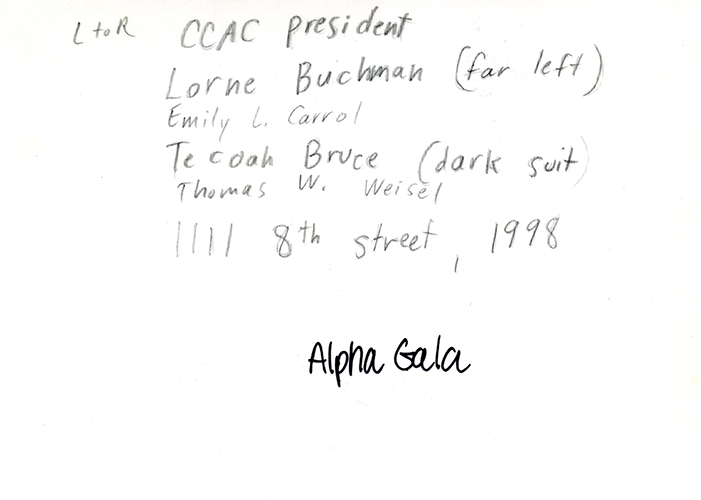 L to R CCAC president
Lorne Buchman (far left)
Emily L. Carrol
Tecoah Bruce (dark suit)
Thomas W. Weisel
1111 8th street, 1998
Alpha Gala